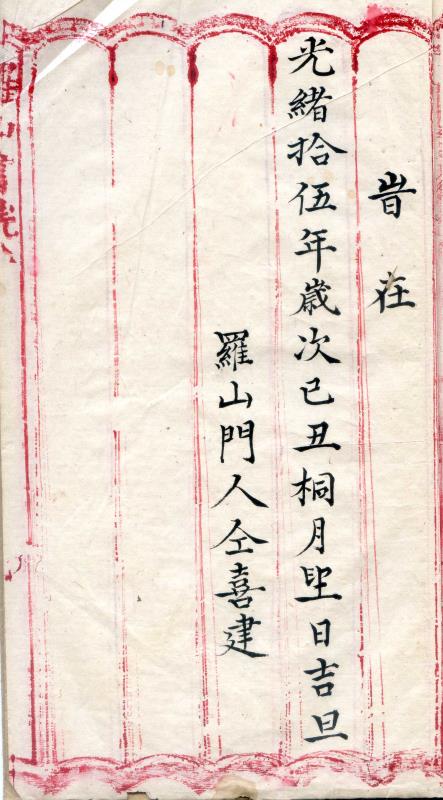 旹在
光緒拾伍年歲次己丑桐月望日吉旦
羅山門人仝喜建